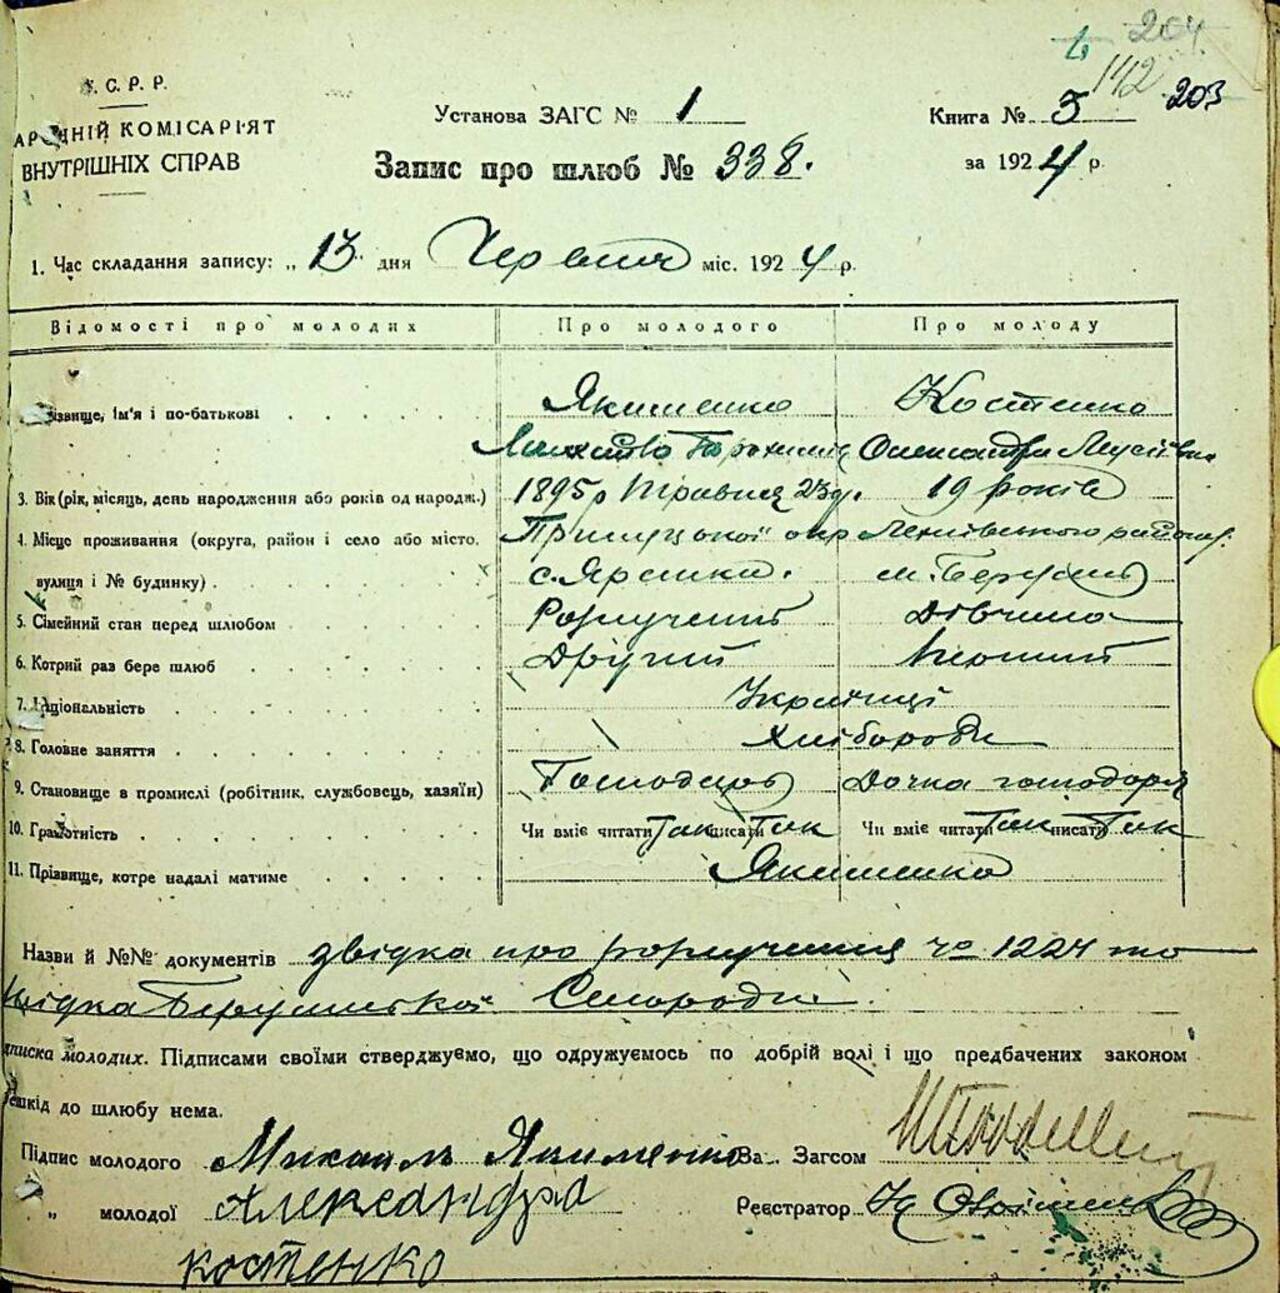 204
142
203
У.С.Р.Р.
НАРОДНІЙ КОМІСАРІЯТ
ВНУТРІШНІХ СПРАВ
Установа ЗАГС № 1
Книга № 3
Запис про шлюб № 338.
за 1924 р.
1. Час складання запису: „13" дня Червня міс. 1924 р.
Відомості про молодих Про молодого Про молоду
Прізвище, ім'я і по-батькові Якименко Костенко
Олександра Мусіївна
3. Вік (рік, місяць, день народження або років од народж.) 1895 р Травня 23 д. 19 років
4. Місце проживання (округа, район і село або місто, Прилуцької окр
вулиця і № будинку) с. Ярошки. м. Березань
5. Сімейний стан перед шлюбом Розлучений Дівчина
6. Котрий раз бере шлюб Другий Перший
7. Національність Українці
8. Головне заняття Хлібороби
9. Становище в промислі (робітник, службовець, хазяїн) Господарь Дочка господаря
10. Грамотність Чи вміє читати Так писати Так Чи вміє читати Так писати Так
11. Прізвище, котре надалі матиме Якименко
Назви й №№ документів звідка про розлучення № 1224 та
звідка Березанської Сільради.
Підписка молодих. Підписами своїми стверджуємо, що одружуємось по добрій волі і що предбачених законом
перешкід до шлюбу нема.
Підпис молодого Михаилъ Якименко
За. Загсом
„ молодої Александра
Реєстратор
костенко